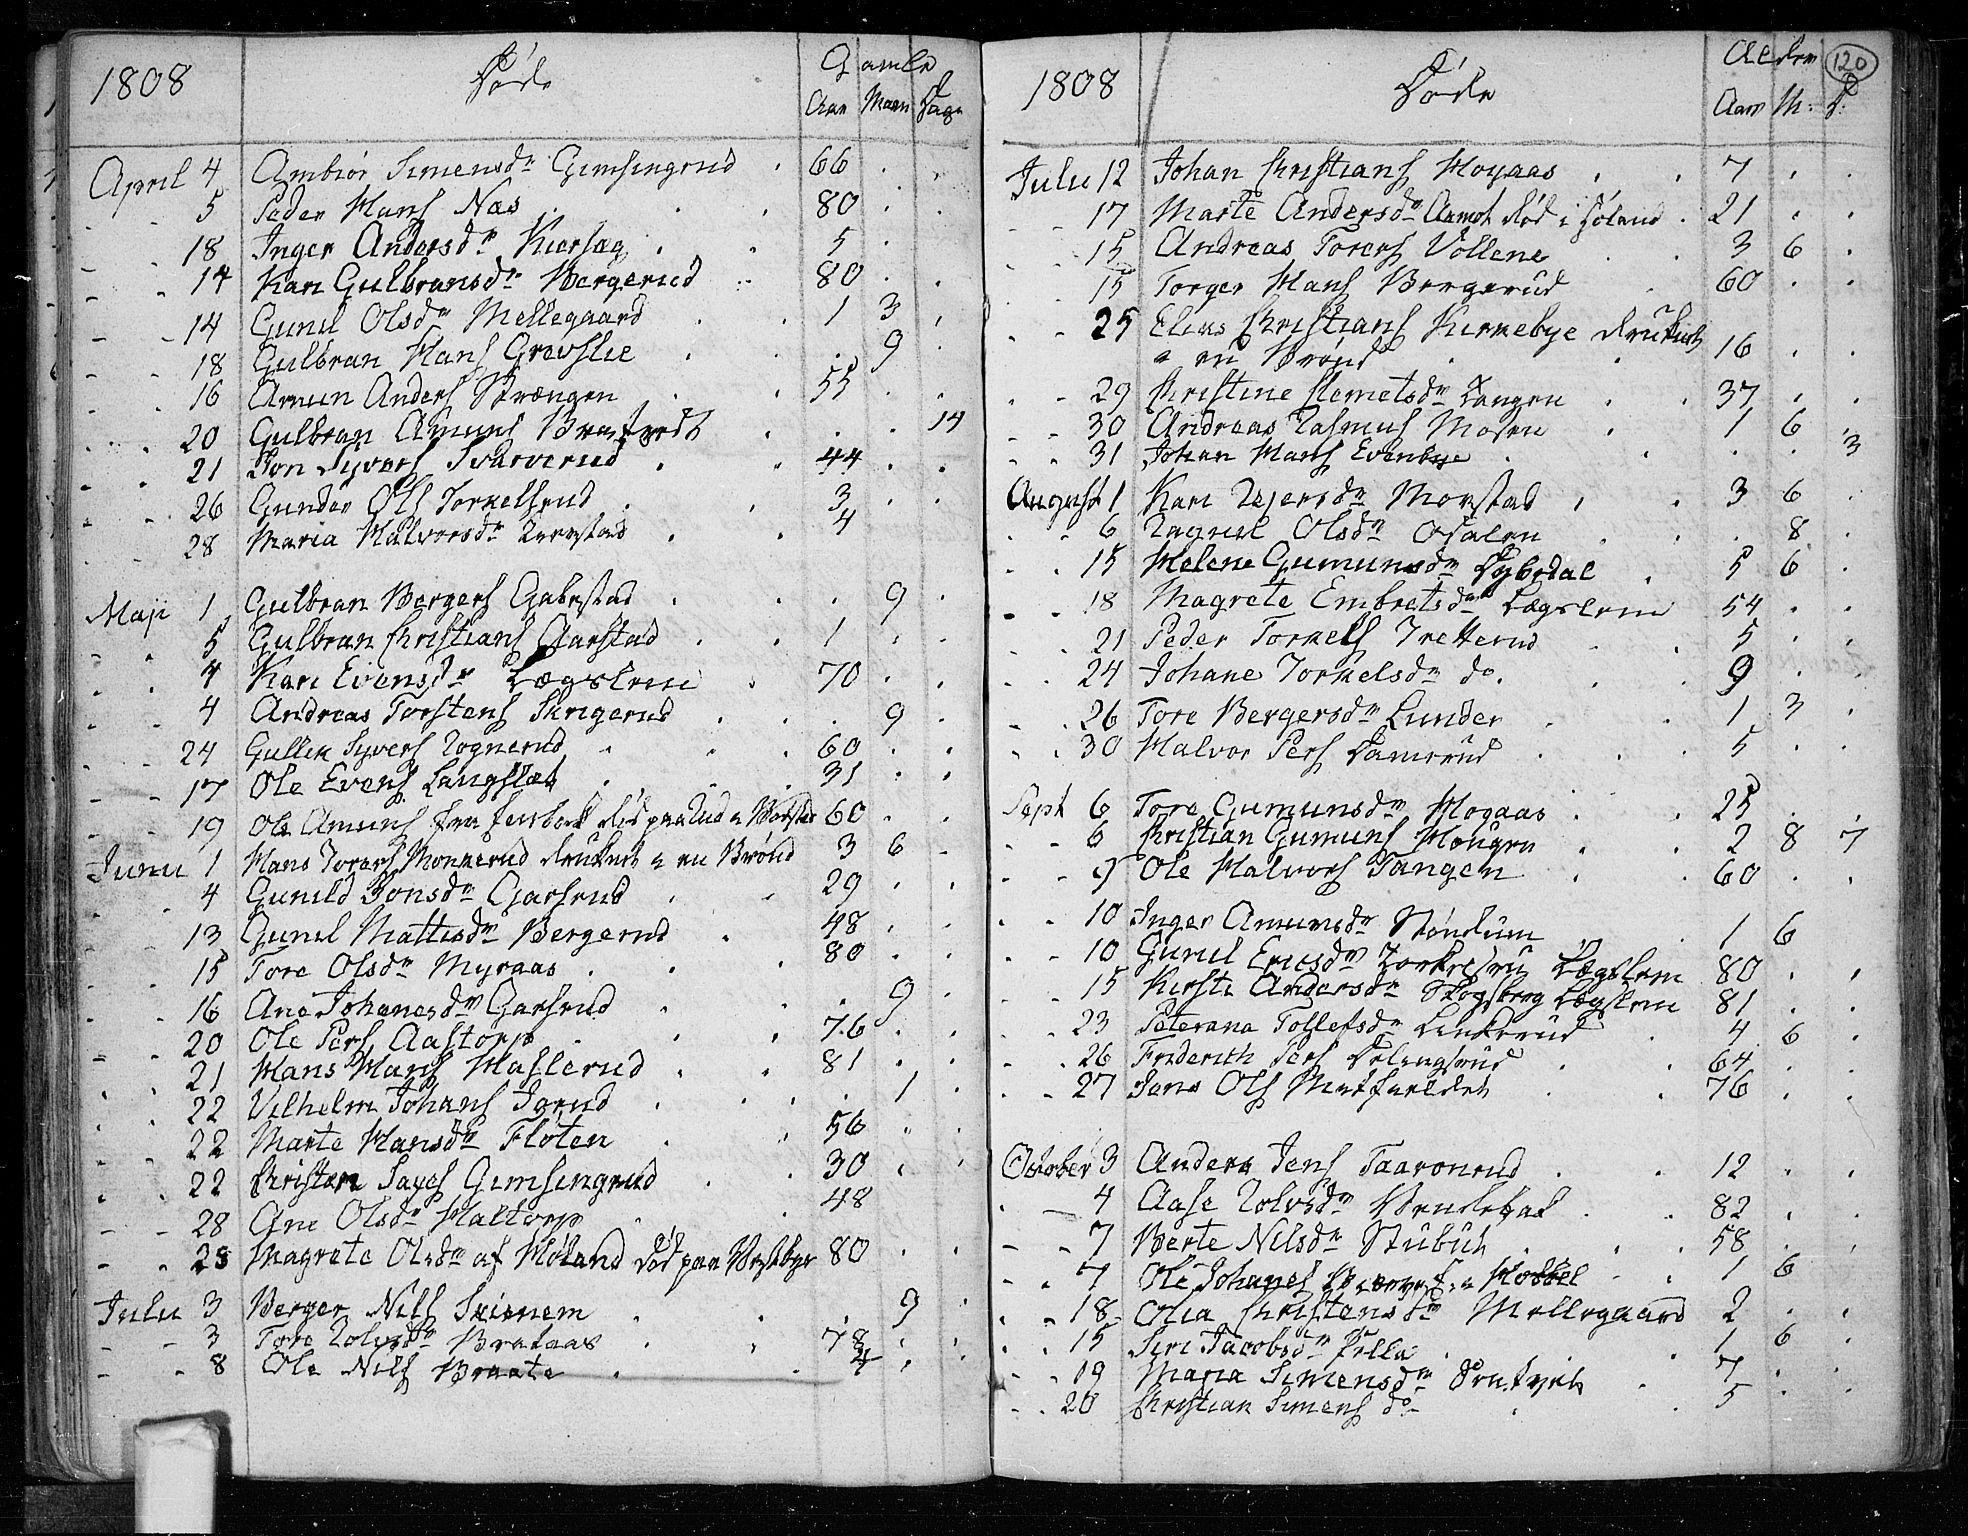 1808 Døde Gamle
Aar Maan Dage
April 4 Ambiør Simensdr Gimsingrud 66
5 Peder Hans Næs 80
18 Inger Andersdr Kiersæg 5
14 Kari Gulbransdr Bergerud 80
14 Gunil Olsdr Mellegaard 1 3
18 Gulbran Hans Grevslie 9
16 Amun Anders Strængen 55
20 Gulbran Amuns 14
21 Jon Syvers Svarverud 44
26 Gunder Ols Torkelsrud 3
28 Maria Halvorsdr 4
Maji 1 Gulbran Bergers Gabestad 9
5 Gulbran Christians Aarstad 1
4 Kari Evensdr Lægslem 70
4 Andreas Torstens Skrigerud 9
24 Gullik Syvers Rognerud 60
17 Ole Evens Langslæt 31
19 Ole Amuns fra død paa Rud 60
Junii 1 Hans Torers Monkerud druknet i en Brønd 3 6
4 Gunild Jonsdr Garsrud 29
13 Gunil Mattisdr Bergerud 48
15 Tore Olsdr Myraas 80
16 Ane Johanesdr Garsrud 9
20 Ole Pers Aastorp 76
21 Hans Hans Haslerud 81
22 Vilhelm Johans 1
22 Marte Hansdr Floten 56
22 Christen Gimsingrud 30
28 Ane Olsdr Haltorp 48
28 Magrete Olsdr af Høland død paa Vestbye 80
Julii 3 Berger Nils Skienem 9
3 Tore Rolvsdr Brataas 78
8 Ole Nils Braate 4
1808 Døde Alder 120
Aar M: D:
Julii 12 Johan Christians Mogaas 7
17 Marte Andersdr Aamot død i Høland 21
15 Andreas Torers Vollene 3 6
15 Torger Hans Bergerud 60
25 Elias Christians Kirkebye druknet
i en Brønd 16
29 Christine Clemetsdr Langen 37
30 Andreas Rasmus Mosen 1 6
31 Johan Hans Evenbye 3
August 1 Kari Rejersdr Morstad 3 6
6 Ragnil Olsdr Osalen 8
15 Helene Gumunsdr Dybedal 5 6
18 Magrete Embretsdr Lægslem 54
21 Peder Torkels Tretterud 5
24 Johane Torkelsdr do. 9
26 Tore Bergersdr Lunder 1 3
30 Halvor Pers Damrud 5
Sept 6 Tore Gumunsdr Mogaas 25
6 Christian Gumuns Hougen 2 8 7
9 Ole Halvors Tangen 60
10 Inger Amunsdr Støndum 1 6
10 Gunil Ericsdr Lægslem 80
15 Kirsti Andersdr Skogsberg Lægslem 81
23 Peterana Tollefsdr Linderud 4 6
26 Friderich Pers 64
27 Jens Ols 76
October 3 Anders Jens Taaronrud 12
4 Aase Rolvsdr Vendebal 82
7 Berte Nilsdr Stubuh 58
7 Ole Johans Hobbel 1 6
18 Olia Christensdr Mellegaard 2
15 Siri Jacobsdr 1 6
19 Maria Simensdr 7
20 Christian Simens do 5